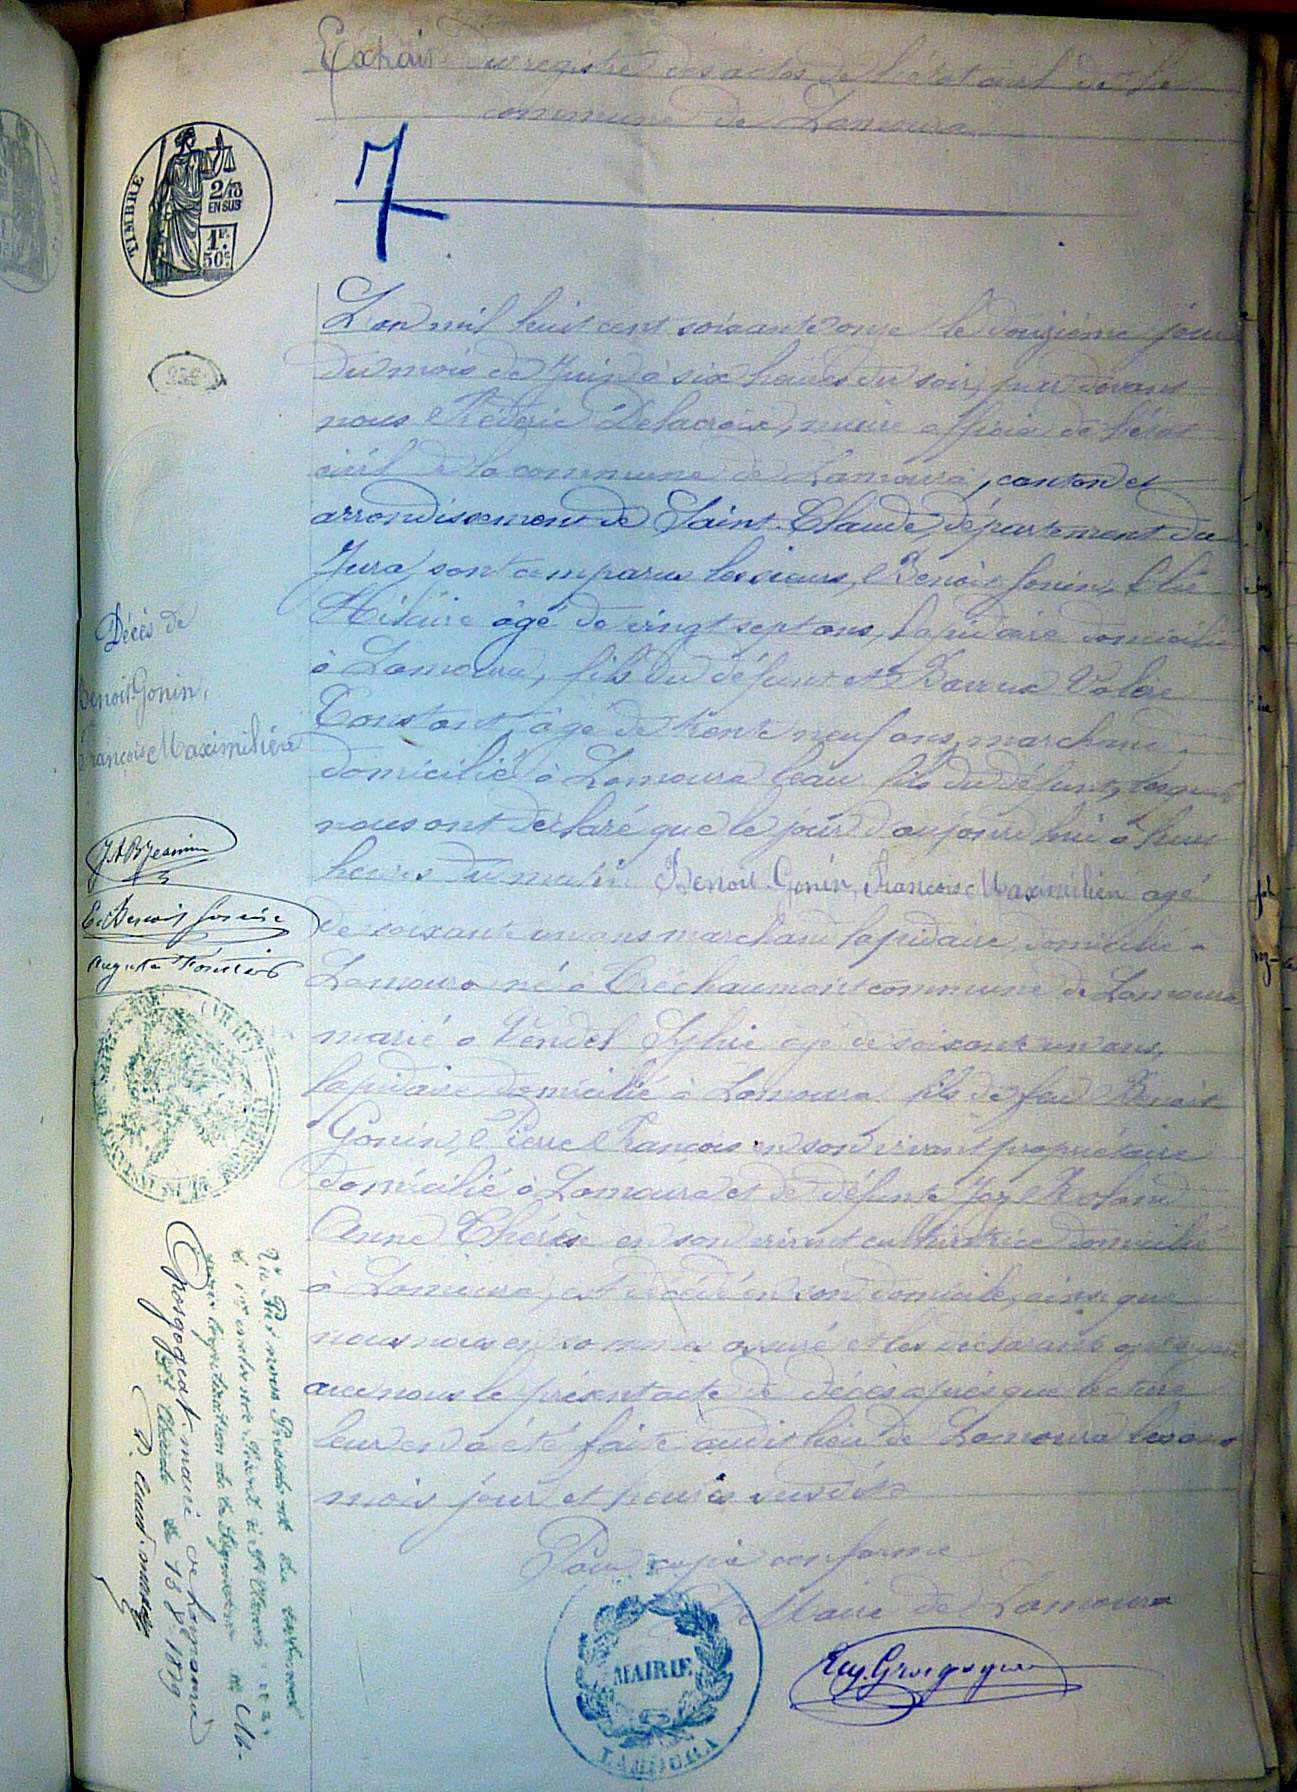 Extrait du registre des actes de l'état civil de la
commune de Lamoura
7
TIMBRE
2/10
EN SUS
1F.
50c
L'an mil huit cent soixante onze le douzième jour
du mois de Juin à six heures du soir, par devant
nous Fréderic Delacroix, maire officier de l'état
civil de la commune de Lamoura, canton et
arrondissement de Saint-Claude, département du
Jura, sont comparus les sieurs, Benoit Gonin,
Hilaire âgé de vingt sept ans, lapidaire domicilié
à Lamoura, fils du défunt et Barrux Valère
Constant âgé de trente neuf ans, marchand
domicilié à Lamoura beau fils du défunt, lesquels
nous ont déclaré que le jour d'aujourd'hui à
heures du matin Benoit-Gonin, François Maximilien agé
de soixante un ans marchand lapidaire domicilié à
Lamoura né à Tréchaumont commune de Lamoura
marié à Vendel Sylvie agé de soixante un ans,
lapidaire domicilié à Lamoura fils de feu Benoit
Gonin, Pierre François en son vivant propriétaire
domicilié à Lamoura et de défunte Joz Roland
Anne Thérèse en son vivant cultivatrice domicilié
à Lamoura, est décédé en son domicile, ainsi que
nous nous en sommes assuré et les déclarants ont signé
avec nous le présent acte de décès après que lecture
leur en a été faite audit lieu de Lamoura les an
mois jour et heures susdits
Pour copie conforme
Le Maire de Lamoura
Eug. Grosgogeat
MAIRIE
LAMOURA
Décès de
Benoit-Gonin,
François Maximilien
E. Benoit Gonin
Vu Par nous Président du tribunal
pour légalisation de la signature de M.
Grosgogeat maire de Lamoura
St Claude le 13 1879